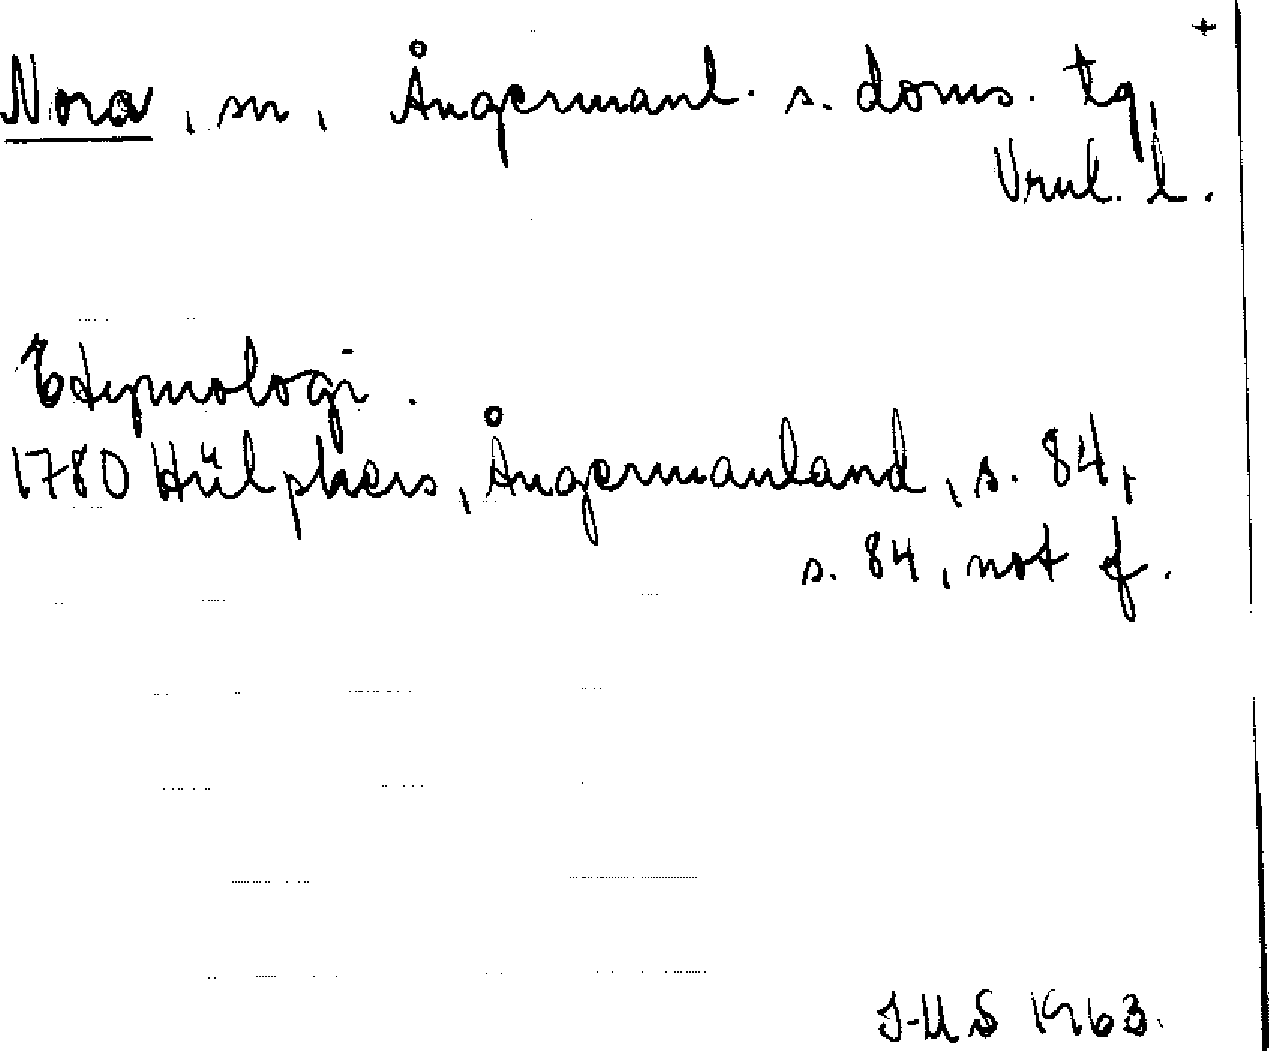 +
Nora, sn, Ångermanl. s. doms. tg,
Vrnl. l.
Etymologi.
1780 Hülphers, Ångermanland, s. 84,
s. 84, not f.
J-US 1963.